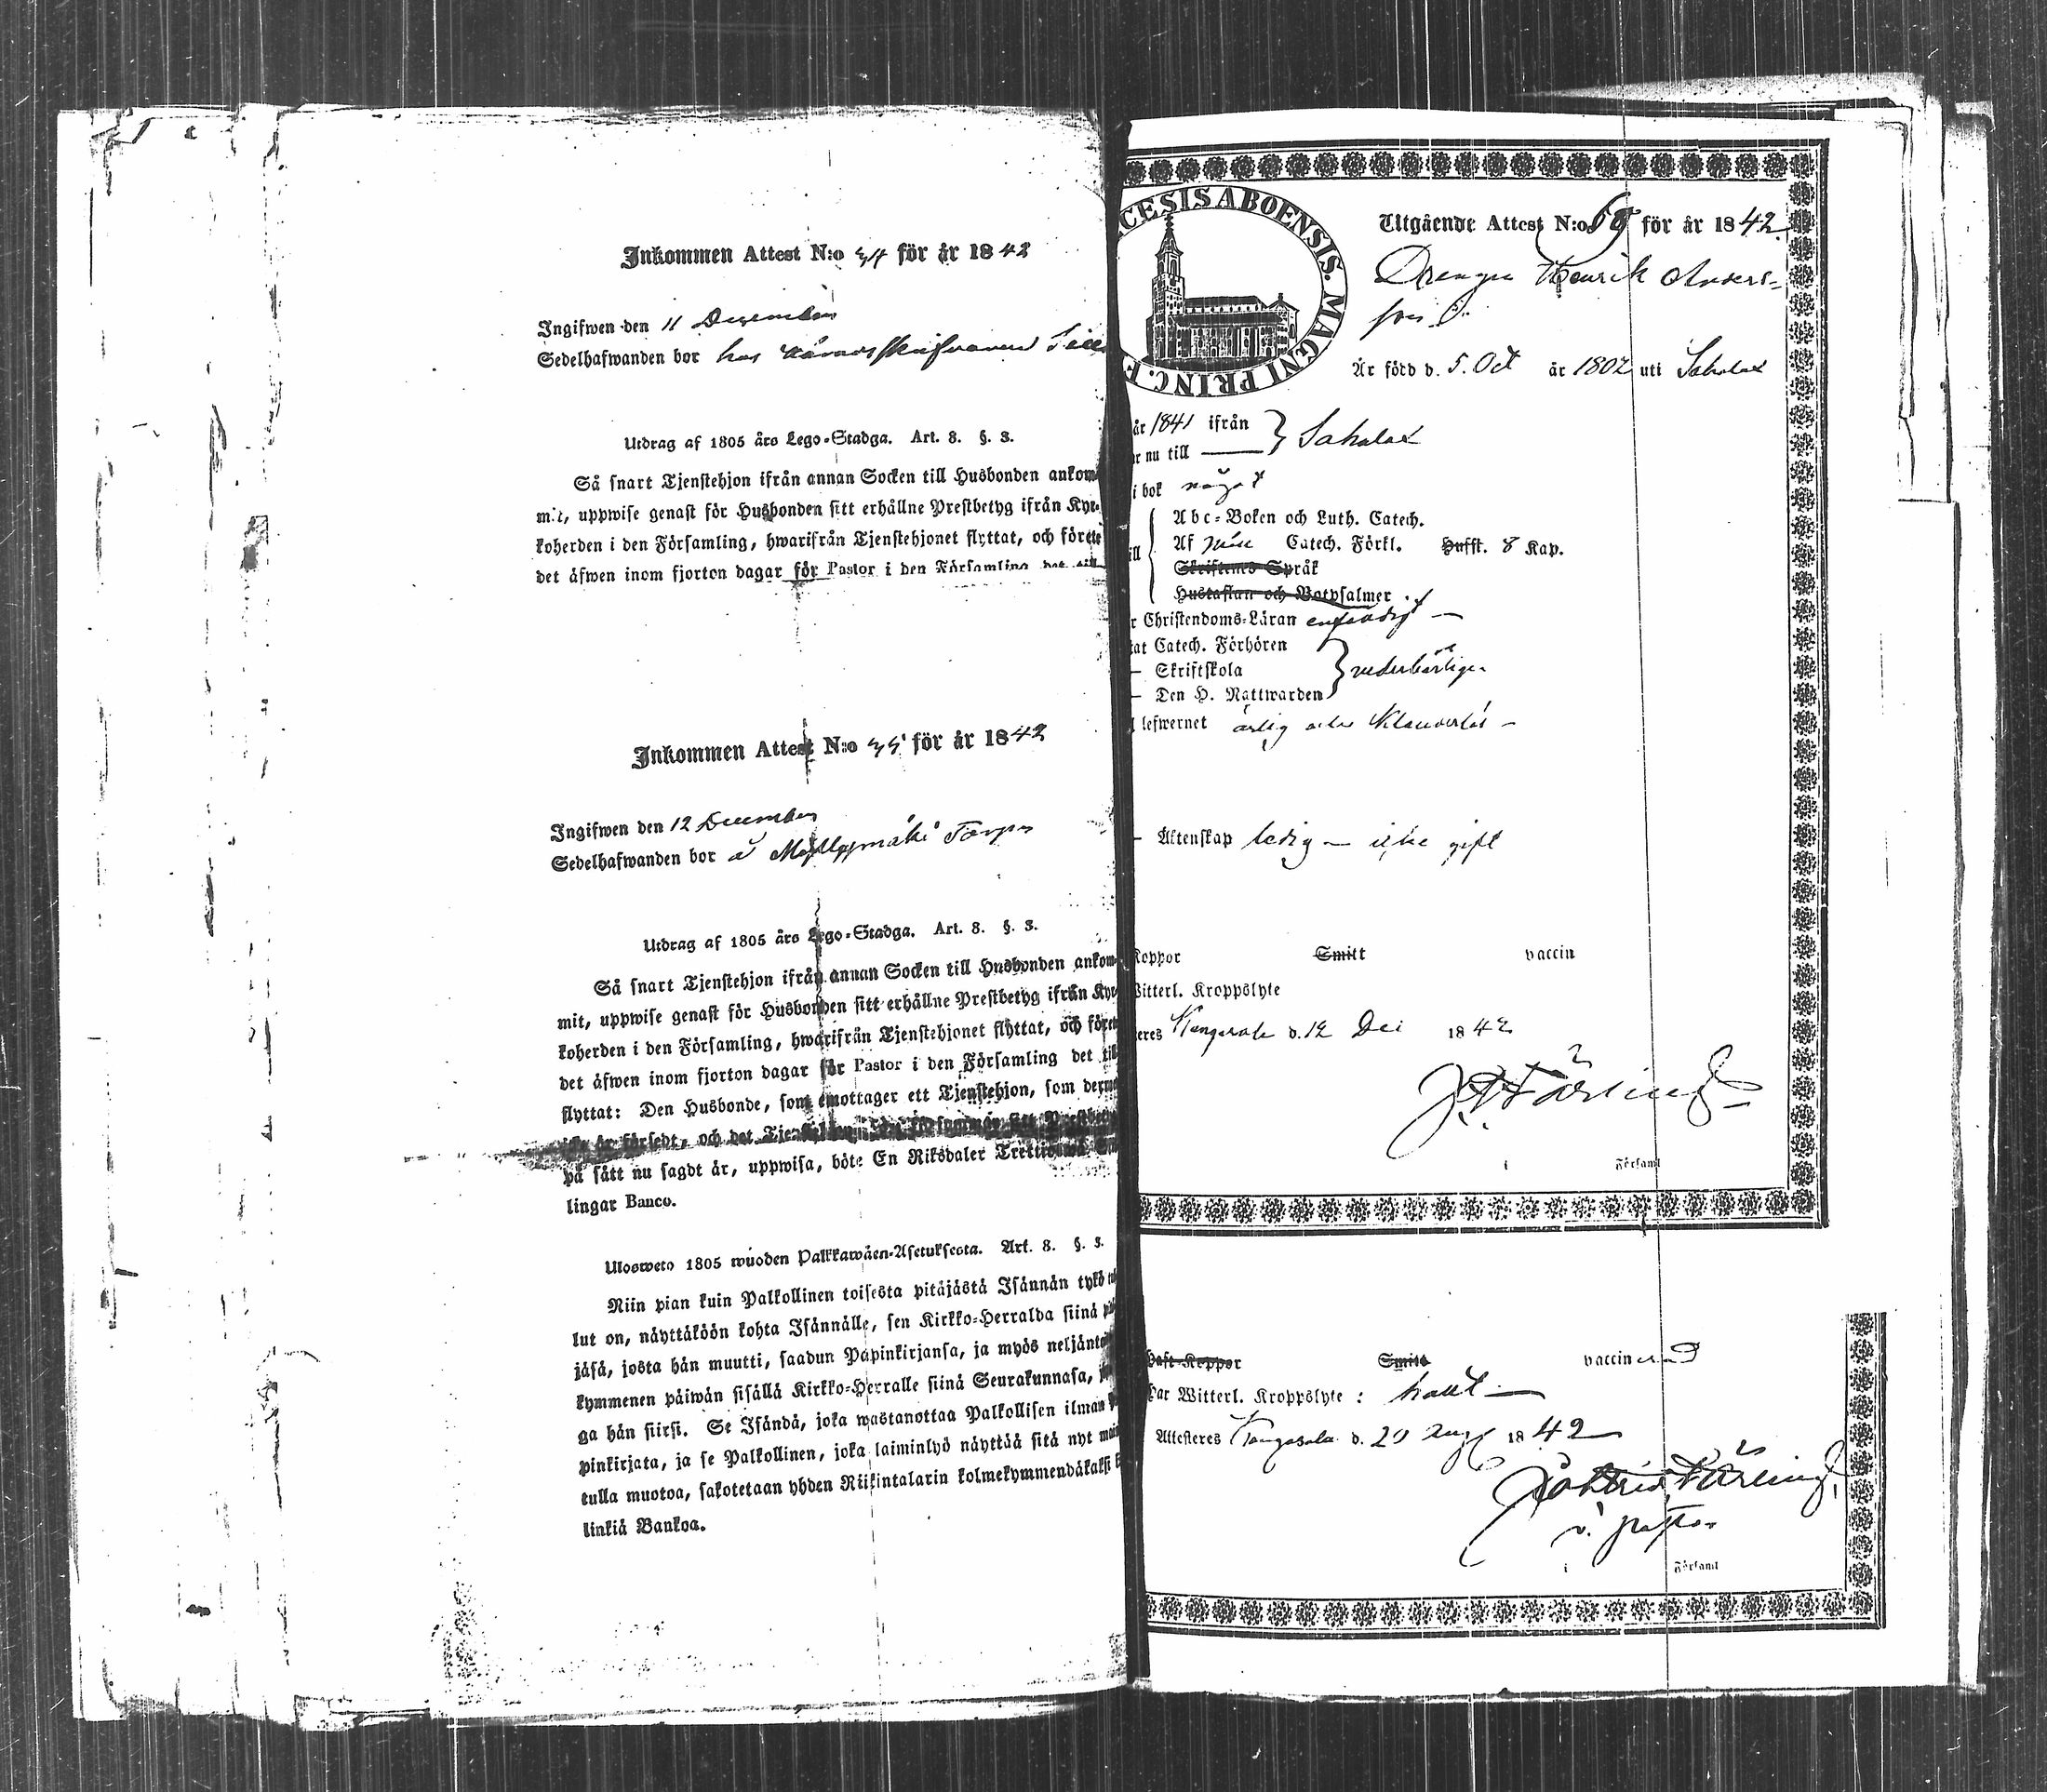 Inkommen Attest N:o 34 för år 1842
Ingifwen den 11 December
Sedelhafwanden bor hos
Utdrag af 1805 års Lego-Stadga. Art. 8. §. 3.
Så snart Tjenstehjon ifrån annan Socken till Husbonden ankom-
mit, uppwise genast för Husbonden sitt erhållne Prestbetyg ifrån Kyr-
koherden i den Församling, hwarifrån Tjenstehjonet flyttat, och förete
det äfwen inom fjorton dagar för Pastor i den Församling det till
Inkommen Attest N:o 35 för år 1842
Ingifwen den 12 December
Sedelhafwanden bor å Myllymäki Torp
Utdrag af 1805 års Lego-Stadga. Art. 8. §. 3.
Så snart Tjenstehjon ifrån annan Socken till Husbonden ankom-
mit, uppwise genast för Husbonden sitt erhållne Prestbetyg ifrån Kyr-
koherden i den Församling, hwarifrån Tjenstehjonet flyttat, och förete
det äfwen inom fjorton dagar för Pastor i den Församling det till
flyttat: Den Husbonde, som emottager ett Tjenstehjon, som derme
icke är försedt, och det Tjenstehjon som försummar sitt Prestbetyg
på sätt nu sagdt är, uppwisa, böte En Riksdaler Trettiotwå
lingar Banco.
Ulosweto 1805 wuoden Palkkawäen-Asetuksesta. Art. 8. §. 3.
Niin pian kuin Palkollinen toisesta pitäjästä Isännän tykö tul
lut on, näyttäköön kohta Isännälle, sen Kirkko-Herralda siinä pitä
jäsä, josta hän muutti, saadun Papinkirjansa, ja myös neljäntoist
kymmenen päiwän sisällä Kirkko-Herralle siinä Seurakunnasa, jo
ga hän siirsi. Se Isändä, joka wastanottaa Palkollisen ilman Pa
pinkirjata, ja se Palkollinen, joka laiminlyö näyttää sitä nyt mai
tulla muotoa, sakotetaan yhden Riikintalarin kolmekymmendäkaksi
linkiä Bankoa.
CESIS ABOENSIS. MAGNI PRINC. F
Utgående Attest N:o 69 för år 1842
Drengen Henrik Anders-
son
Är född d. 5. Oct år 1802 uti Sahalax
år 1841 ifrån
r nu till Sahalax
i bok något
Abc-Boken och Luth. Catech.
ill Af Catech. Förkl. Hufst. 8 Kap.
Skriftenes Språk
Hustaflan och Botpsalmer
r Christendoms-Läran
tat Catech. Förhören
Skriftskola vederbörligen
Den H. Nattwarden
lefwernet ärlig och klanderlös
Äktenskap ledig – icke gift
Koppor Smitt vaccin
Witterl. Kroppslyte
eres Kangasala d. 12 Dec 1842
Färling
i Församl
haft Koppor Smitt vaccinerad
har Witterl. Kroppslyte: halt
Attesteres Kangasala d. 20 Aug 1842
Färling
v. pastor
i Församl